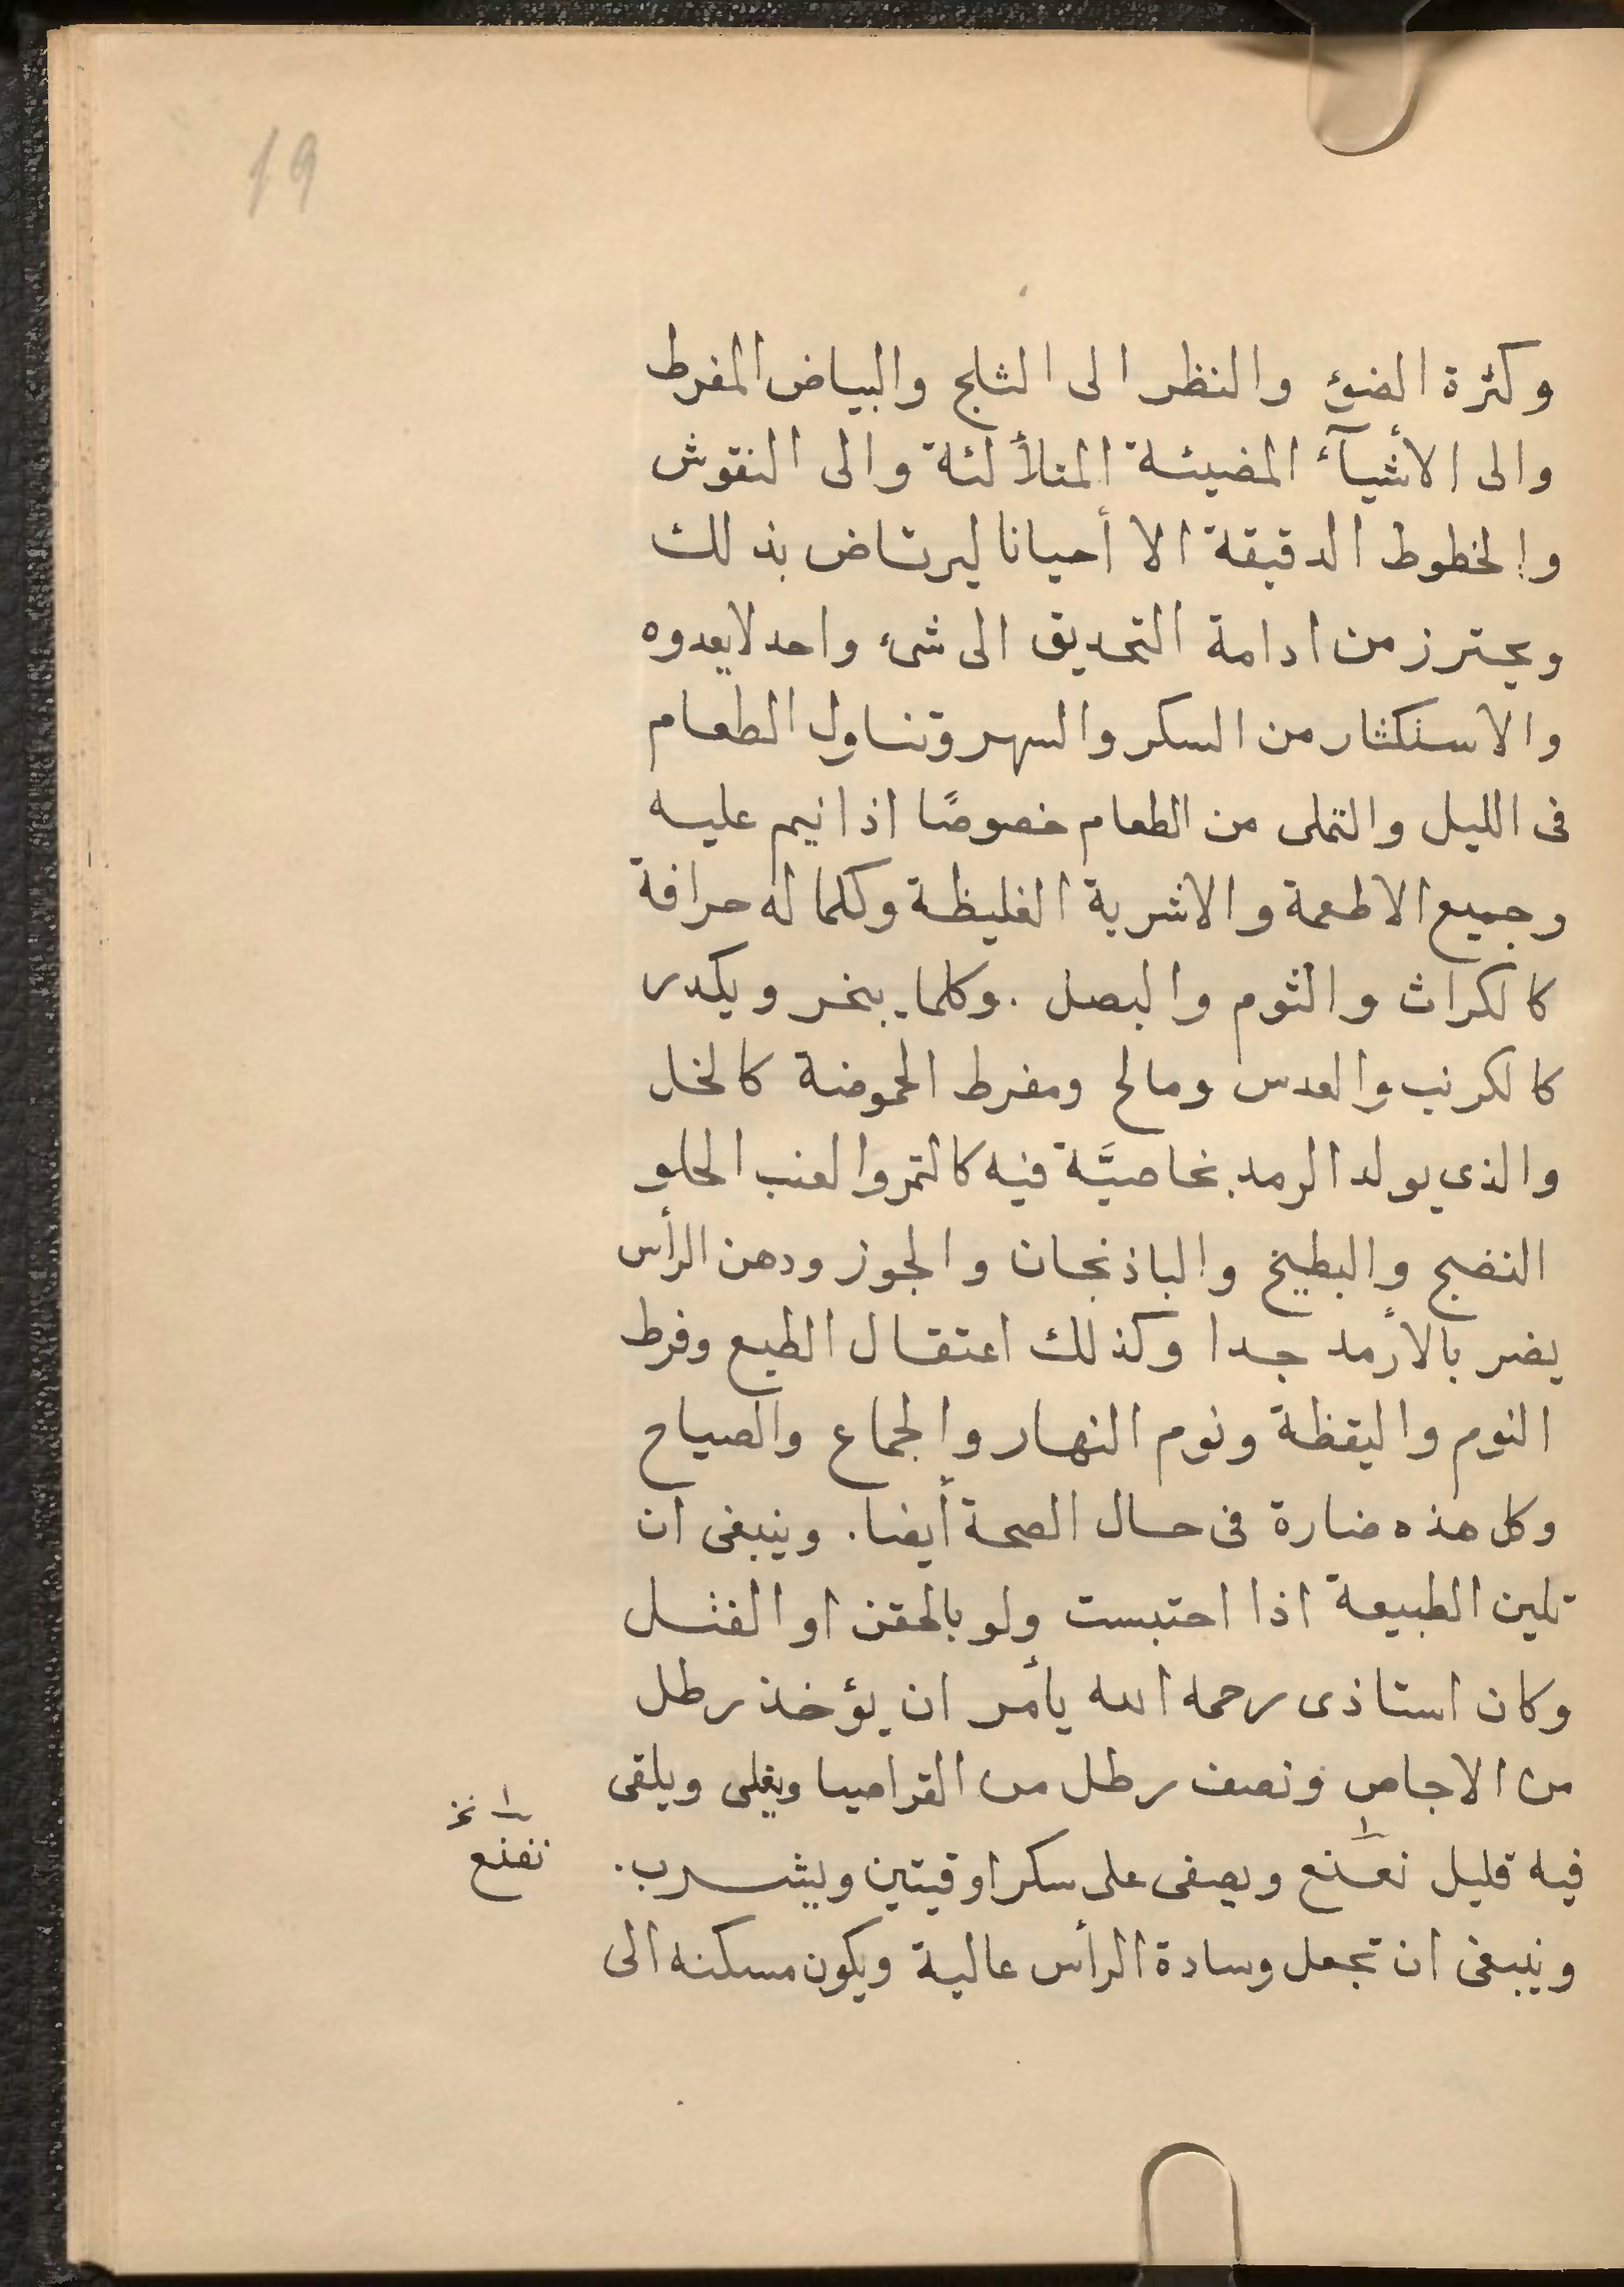 19
وكثرة الضوء والنظر الى الثلج والبياض المفرط
والى الأشيآء المضيئة المتلألئة والى النقوش
والخطوط الدقيقة الا أحيانا ليرتاض بذلك
ويحترز من ادامة التحديق الى شىء واحد لا يعدوه
والاستكثار من السكر والسهر وتناول الطعام
فى الليل والتملى من الطعام خصوصًا اذا نيم عليه
وجميع الاطعمة والاشربة الغليظة وكلما له حرافة
كالكراث والثوم والبصل . وكلما يبخر ويكدر
كالكرنب والعدس ومالح ومفرط الحموضة كالخل
والذي يولد الرمد بخاصيَّة فيه كالتمر والعنب الحلو
النضج والبطيخ والباذنجان والجوز ودهن الرأس
يضر بالأرمد جدا وكذلك اعتقال الطبع وفرط
النوم واليقظة ونوم النهار والجماع والصياح
وكل هذه ضارة فى حال الصحة أيضا. وينبغى ان
تلين الطبيعة اذا احتبست ولو بالحقن او الفتل
وكان استاذى رحمه الله يأمر ان يؤخذ رطل
من الاجاص ونصف رطل من القراصيا ويغلى ويلقى
فيه قليل نعنع ويصفى على سكر اوقيتين ويشرب.
وينبغى ان تجعل وسادة الرأس عالية ويكون مسكنه الى
١ نخ
نعنع